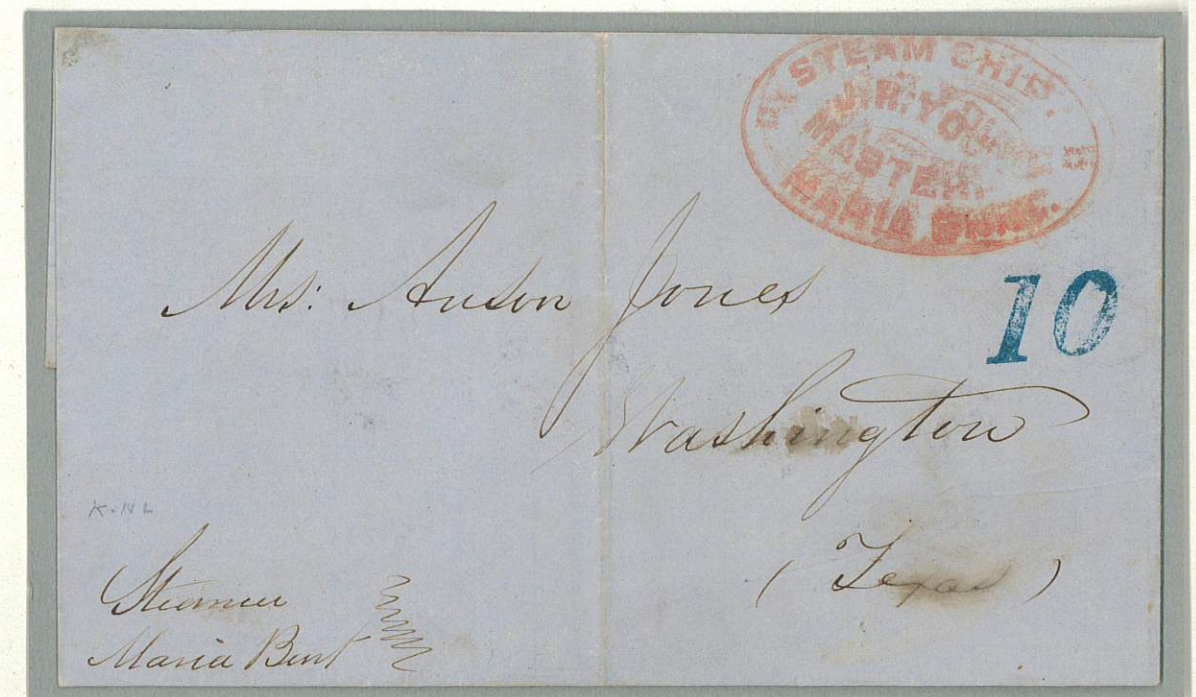 STEAM SHIP.
YO
MASTER.
MARIA
10
Mrs: Anson Jones
Washington
(Texas)
Steamer
Maria Burt